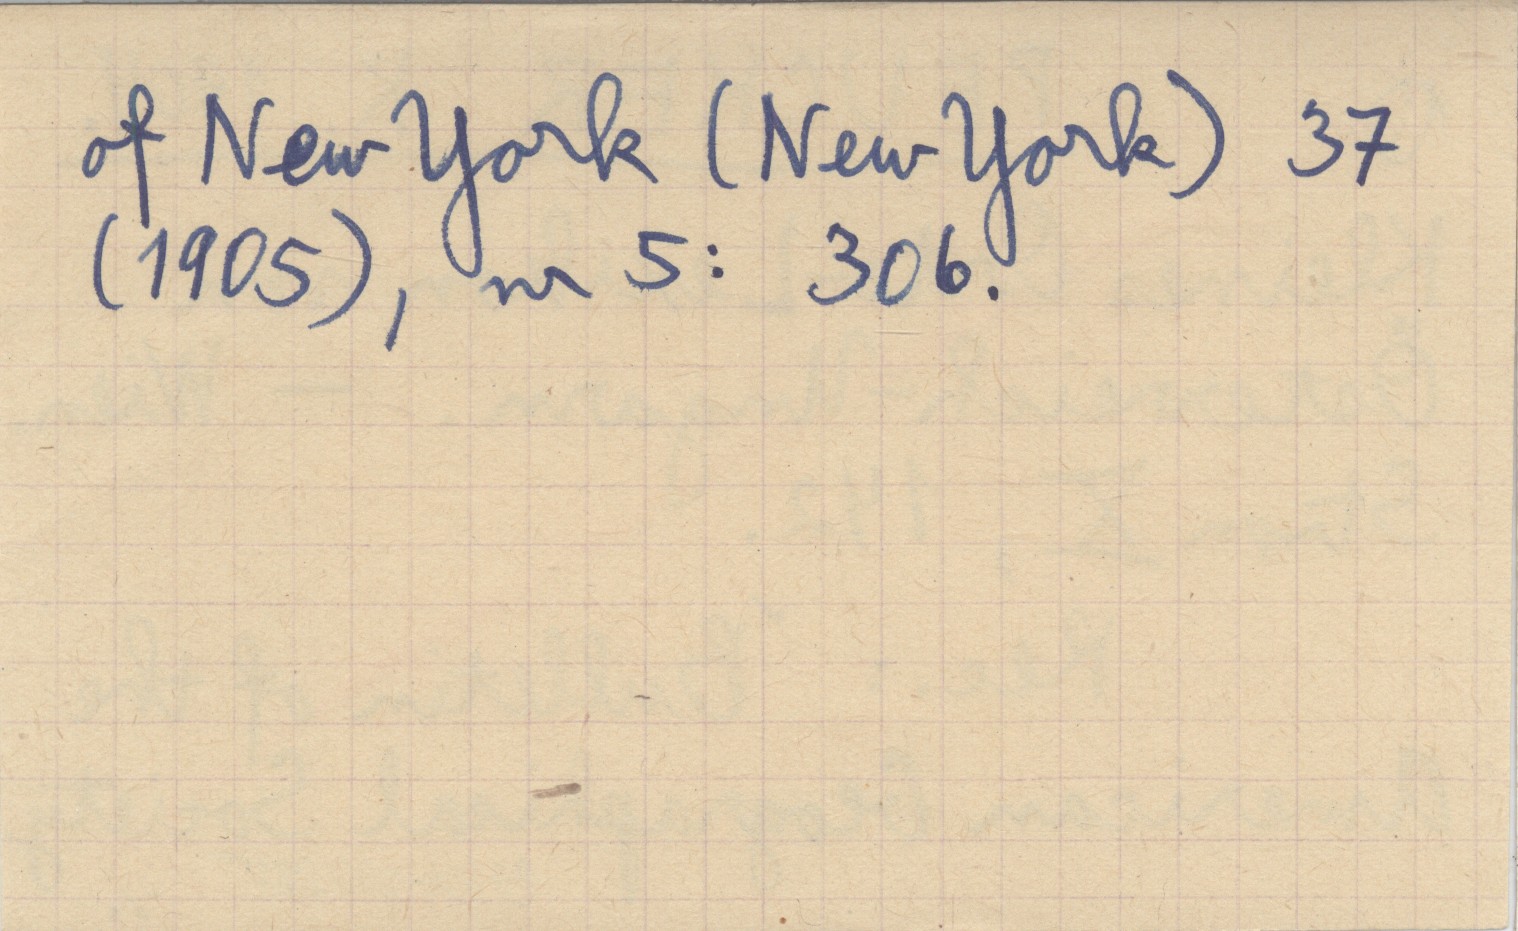 of New York (New York) 37
(1905), nr 5: 306.